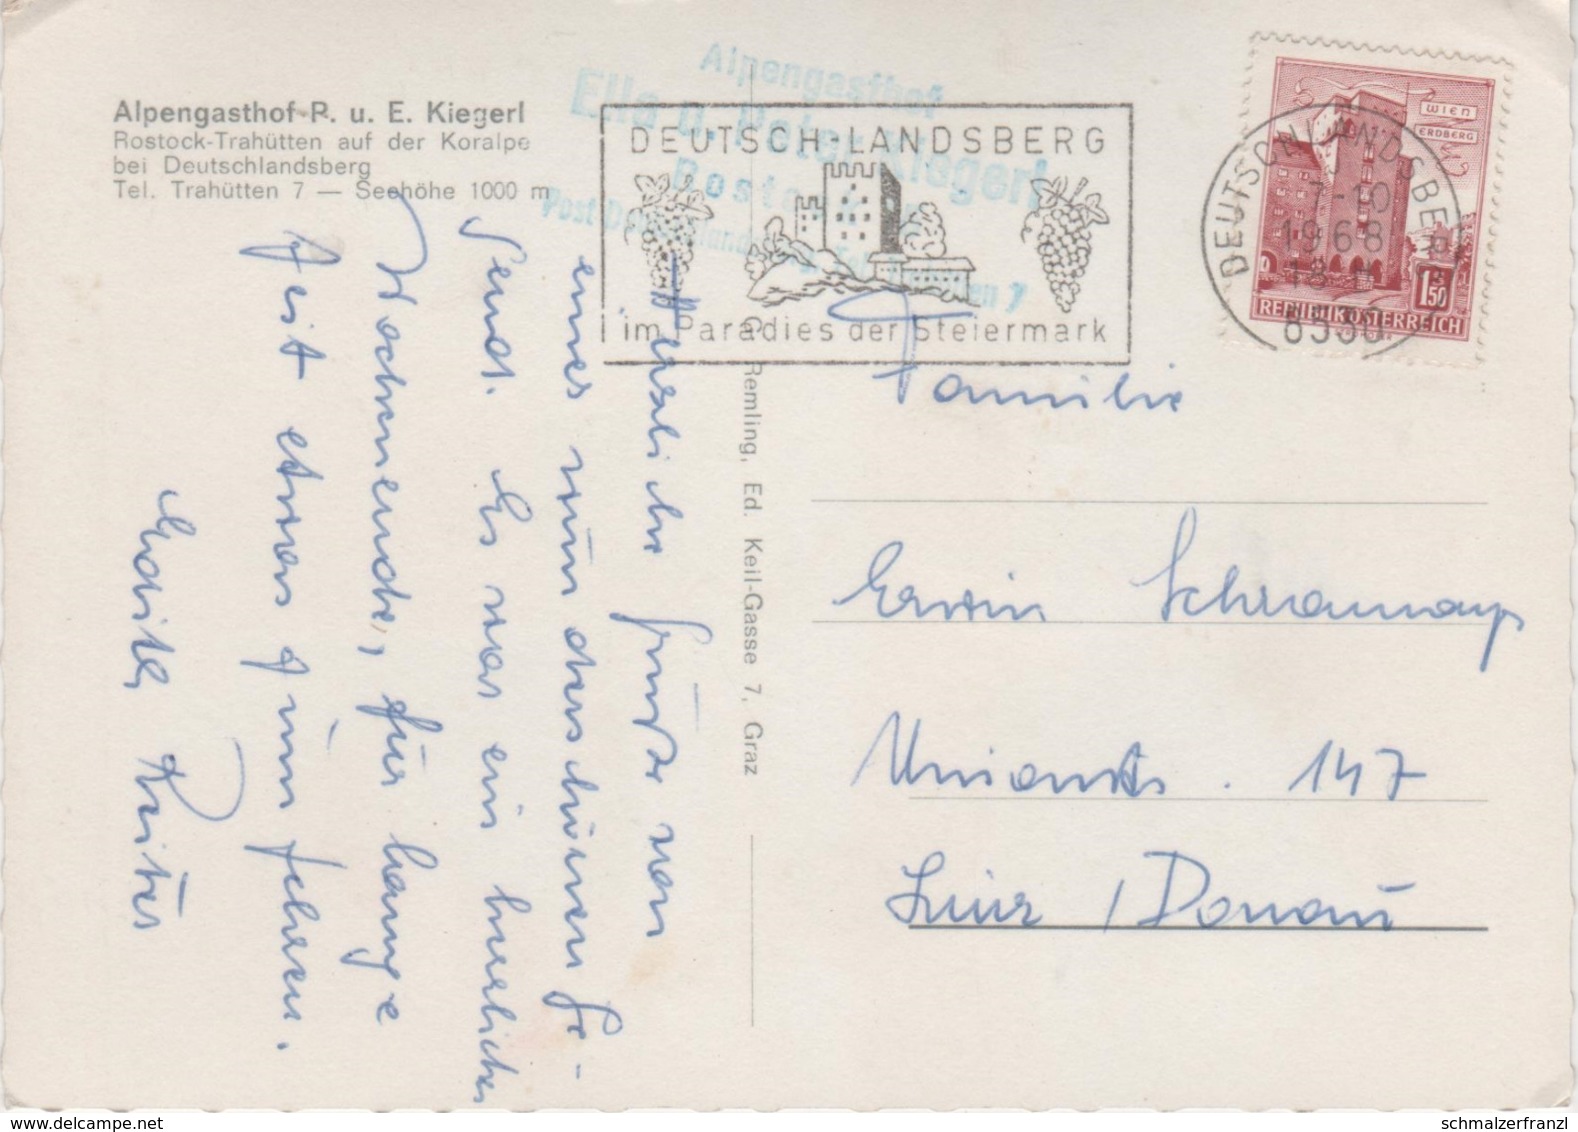 Alpengasthof P. u. E. Kiegerl
Rostock-Trahütten auf der Koralpe
bei Deutschlandsberg
Tel. Trahütten 7 — Seehöhe 1000 m
Alpengasthof
Ella u. Peter Kiegerl
Rostock
Post Deutschlandsberg, Tel. Trahütten 7
DEUTSCH-LANDSBERG
im Paradies der Steiermark
DEUTSCHLANDSBERG
7-10
1968
18
8530
WIEN
ERDBERG
1 50
REPUBLIK ÖSTERREICH
Herzliche Grüße von
einer wunderschönen Ge-
gend. Es war ein herrliches
Wochenende, für lange
Zeit etwas zum sehen.
Edith
Remling, Ed. Keil-Gasse 7, Graz
Familie
Erwin Schramayr
Unionstr. 147
Linz / Donau
schmalzerfranzl
www.delcampe.net